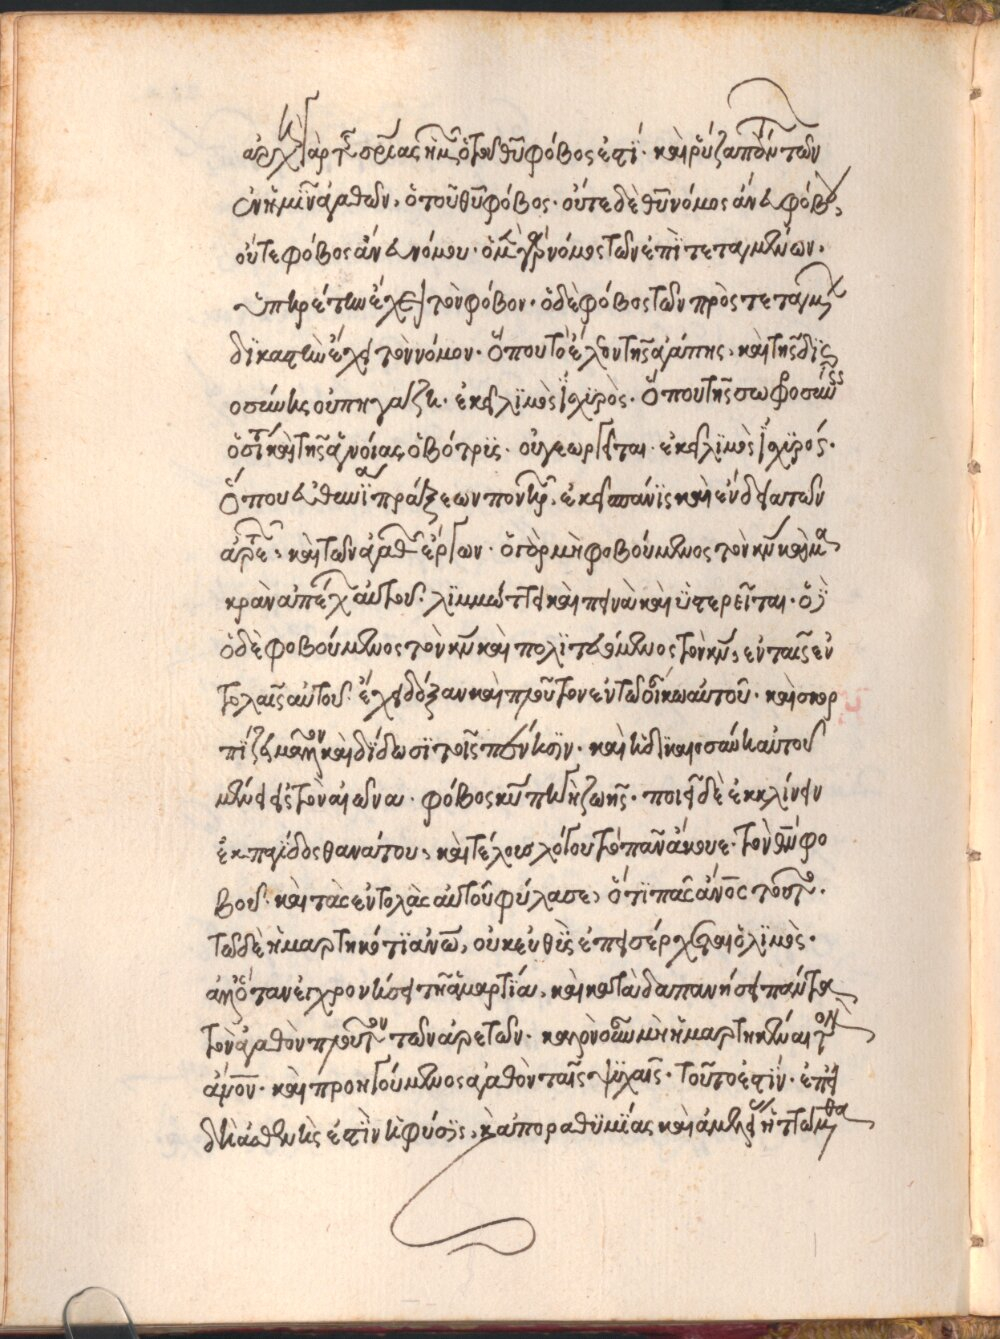 ἀρχὴ γὰρ τῆς σρίας ἡμῶν ὁ τοῦ θυ φόβος ἐστί· καὶ ῥύζα πάντων τῶν
ἐν ἡμῖν ἀγαθων, ὁ τοῦ θυ φόβος· οὔτε δὲ θυ νόμος ἄνευ φόβου,
οὔτε φόβος ἄνευ νόμου· ὁ μὲν γὰρ νόμος τῶν ἐπὶ τεταγμένων.
ὑπηρέτην ἔχει τὸν φόβον· ὁ δὲ φόβος τῶν προς τεταγμένων
δϊκαστὴν ἔχει τὸν νόμον· ὅπου τὸ ἔλεον τῆς ἀγάπης, καὶ τῆς δϊκαι
οσύνης οὐ πηγάζει. ἐκεῖ λϊμὸς ἰσχϊρὸς· ὅπου τῆς σωφροσύνης
ὁ σῖτος καὶ τῆς ἁγνοίας ὁ βότρϋς· οὐ γεωργεῖται· ἐκεῖ λϊμὸς ἰσχϊρός·
ὅπου εὐθενϊα πράξεων πονηρῶν, ἐκεῖ σπάνϊς καὶ ἔνδεια τῶν
ἀρετῶν, καὶ τῶν ἀγαθῶν ἔργων· ὁ γὰρ μὴ φοβούμενος τὸν κν καὶ μα
κρὰν ἀπέχων αὐτοῦ. λϊμώττει καὶ πεινὰ καὶ ὑστερεῖται·
ὁ δὲ φοβούμενος τὸν κν καὶ πολϊτευόμενος τὸν κν, ἐν ταῖς ἐν
τολαῖς αὐτοῦ· ἔχει δόξαν καὶ πλοῦτον ἐν τῶ οἴκω αὐτοῦ· καὶ σκορ
πΐζει μᾶλλον καὶ δίδωσϊ τοῖς πένησϊν· καὶ ἡ δϊκαιοσύνη αὐτοῦ
μένει εἰς τὸν αἰῶνα· φόβος κυ πηγὴ ζωῆς· ποιεῖ δὲ ἐκκλίνειν
ἐκ παγΐδος θανάτου, καὶ τέλος λόγου τὸ πᾶν ἄκουε· τὸν θν φο
βοῦ· καὶ τὰς ἐντολὰς αὐτοῦ φύλασε, ὅτϊ πᾶς ἄνος τοῦτο·
τῶ δὲ ἡμαρτηκότϊ ἀνω, οὐκ ἐυθΐς ἐπεισέρχεται ὁ λϊμὸς·
ἀλλ' ὅταν ἐγχρονήσει τῆ ἁμαρτία, καὶ κατὰ δαπανήσει πάντα
τὸν ἀγαθὸν πλοῦτον τῶν ἀρετῶν· καλὸν οὖν μὴ ἡμαρτηκέναι τὸν
ἄνον· καὶ προηγούμενος ἀγαθὸν ταῖς ψϋχαῖς· τοῦτο ἐστΐν· ἐπεὶ
δὲ ἀσθενὴς ἐστὶν ἡ φύσϊς, καὶ ἀπο ραθϋμΐας καὶ ἀμελείας ἡττώμεθα